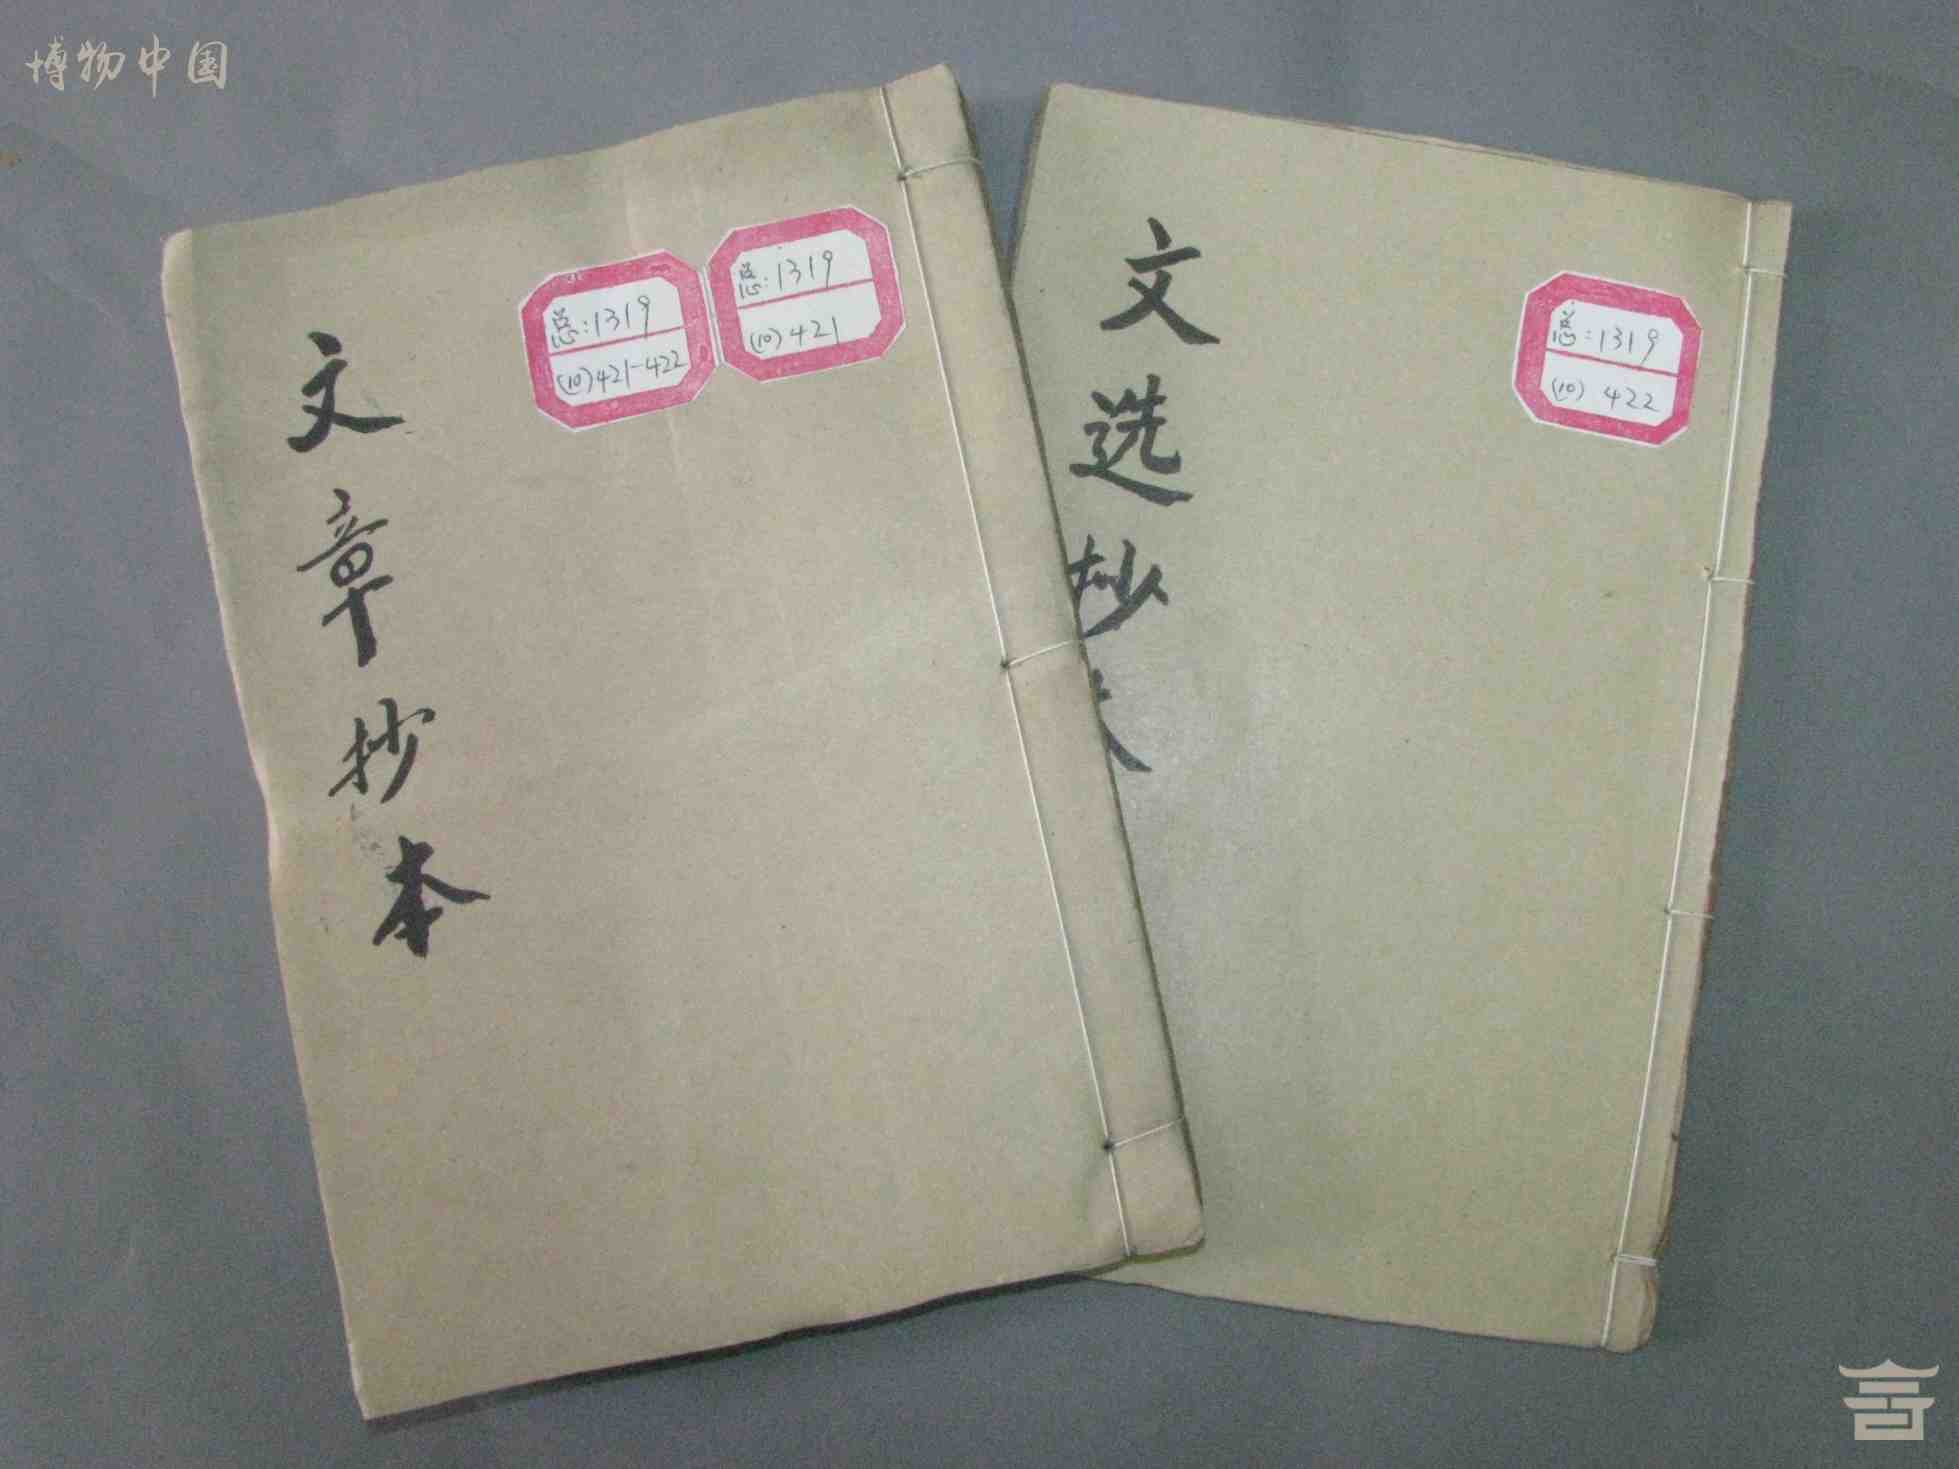 博物中国
文章抄本
总:1319
(10)421-422
总:1319
(10)421
文选抄本
总:1319
(10) 422